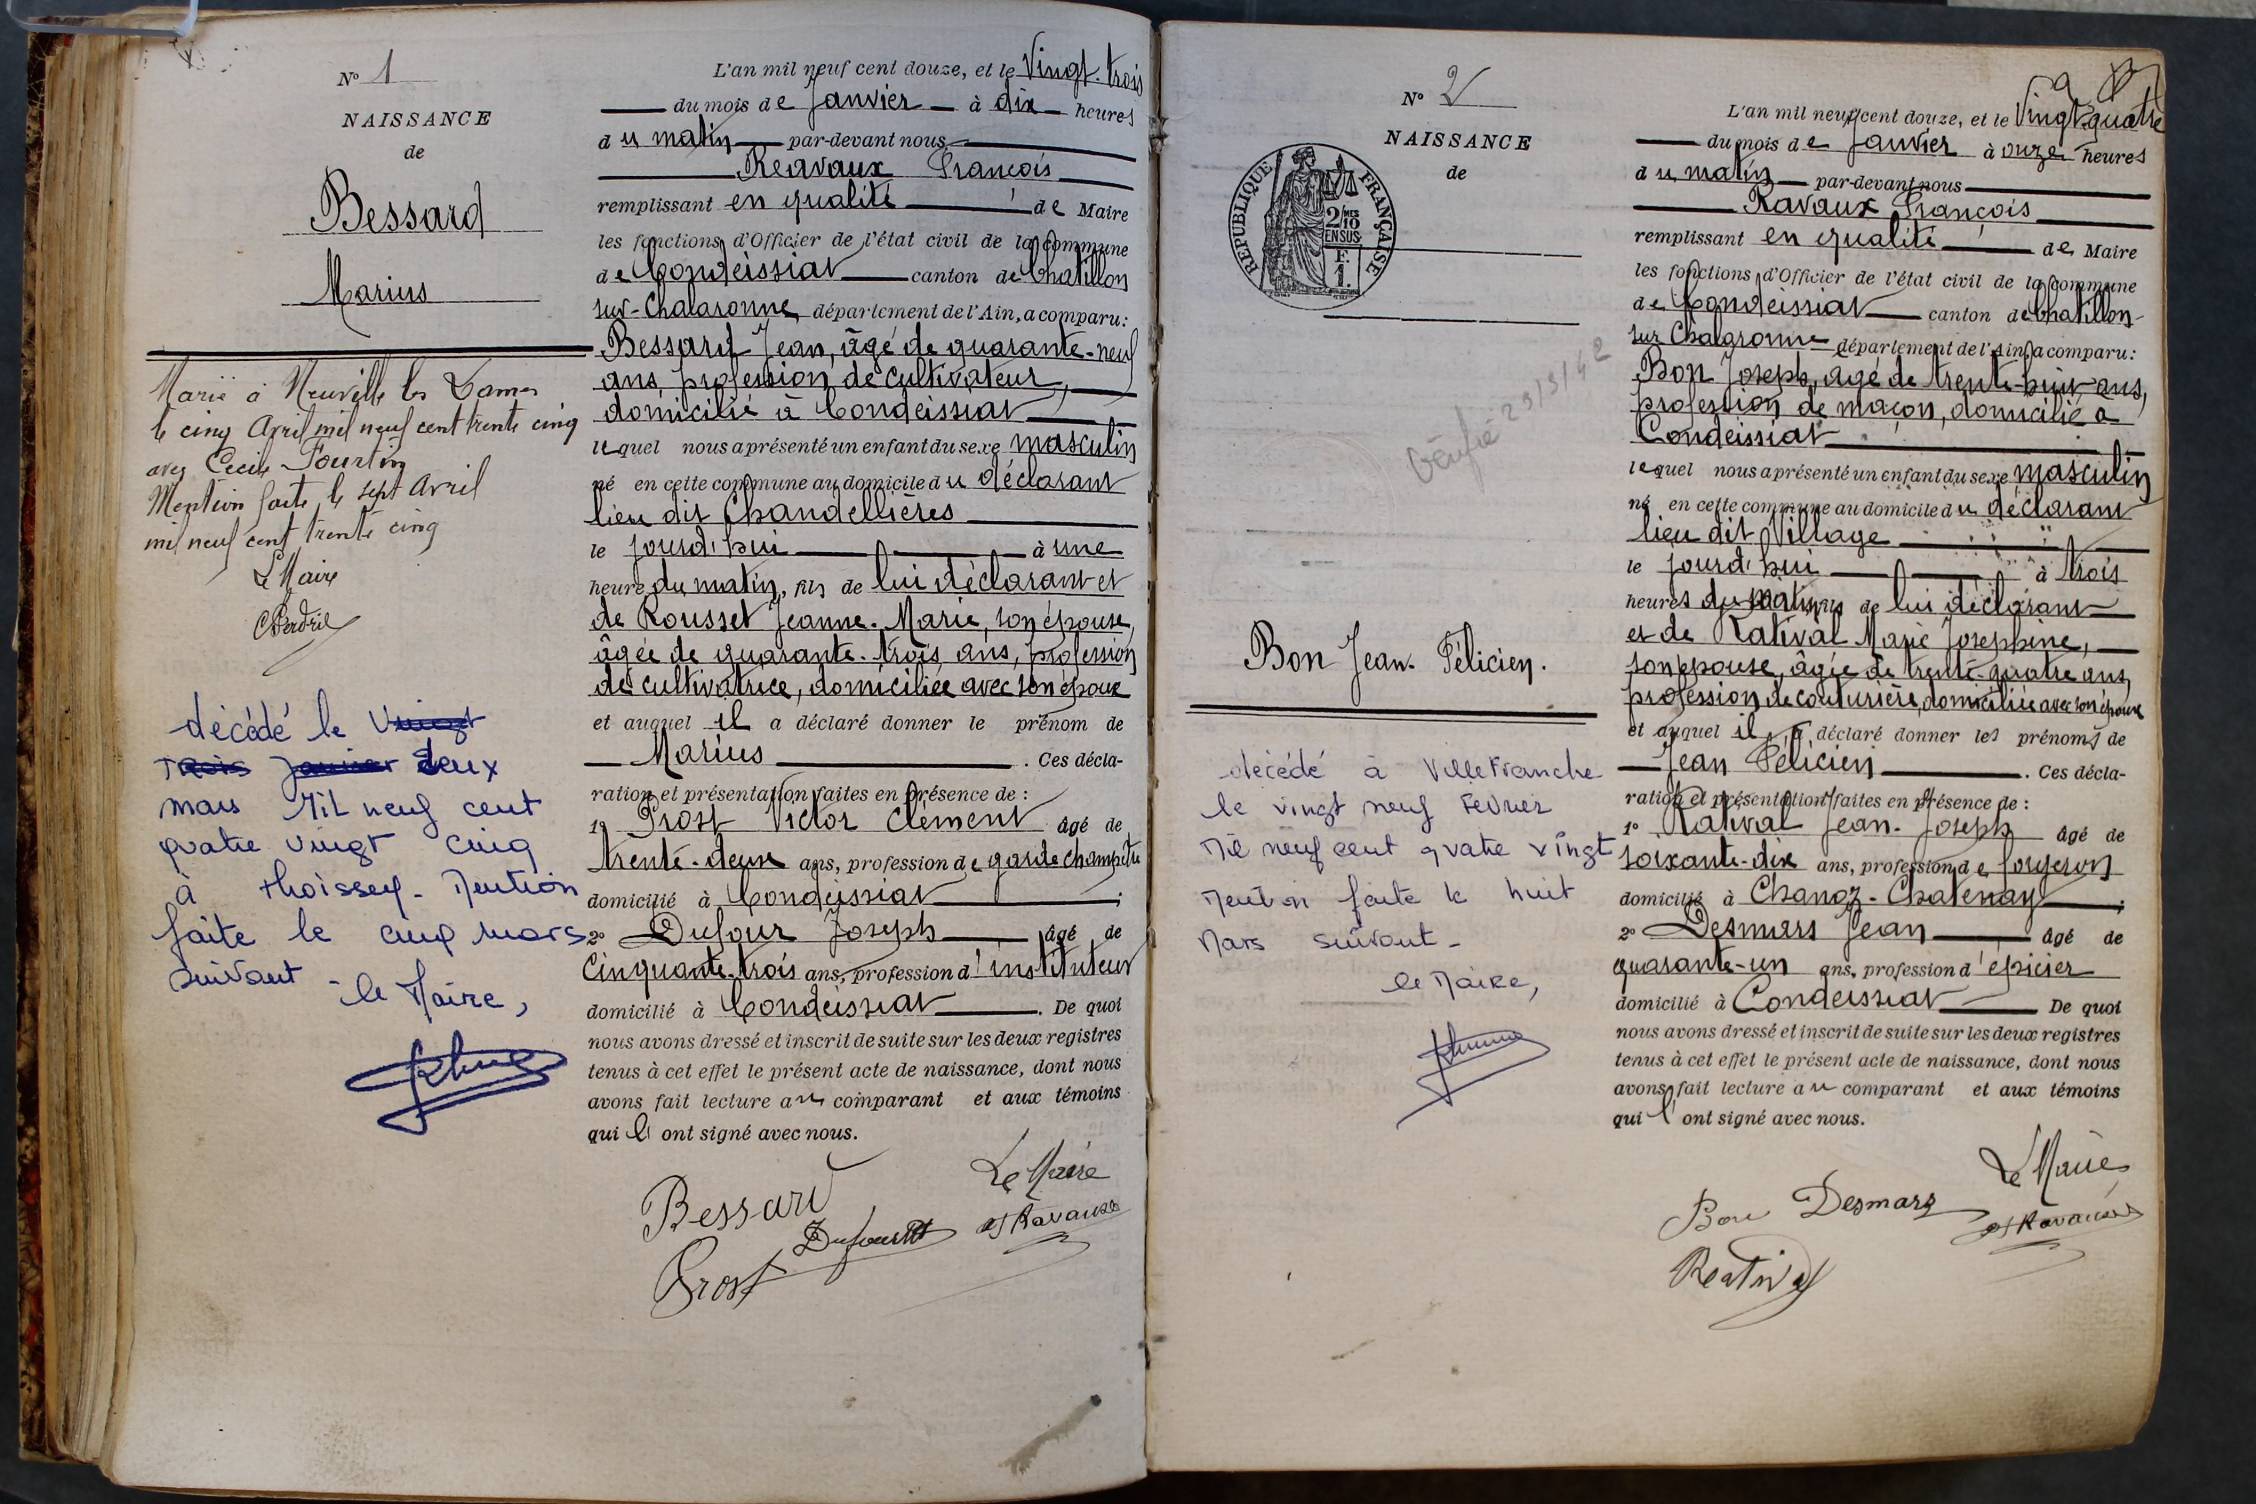 N° 1
NAISSANCE
de
Bessard
Marius
Marié à Neuville les Dames
le cinq Avril mil neuf cent trente cinq
avec Cécile Fourtin
Mention faite le sept Avril
mil neuf cent trente cinq
Le Maire
décédé le vingt
trois Janvier deux
mars Mil neuf cent
quatre vingt cinq
à thoissey - Mention
faite le cinq mars
suivant - le Maire,
L'an mil neuf cent douze, et le Vingt-trois
du mois de Janvier à dix heures
du matin par-devant nous
Ravaux François
remplissant en qualité de Maire
les fonctions d'Officier de l'état civil de la commune
de Condeissiat canton de Chatillon
sur-Chalaronne, département de l'Ain, a comparu:
Bessard Jean, âgé de quarante-neuf
ans, profession de cultivateur,
domicilié à Condeissiat
lequel nous a présenté un enfant du sexe masculin
né en cette commune au domicile du déclarant
lieu dit Chandellières
le jourd'hui à une
heure du matin, fils de lui déclarant et
de Rousset Jeanne-Marie, son épouse,
âgée de quarante-trois ans, profession
de cultivatrice, domiciliée avec son époux
et auquel il a déclaré donner le prénom de
Marius. Ces décla-
ration et présentation faites en présence de :
1° Prost Victor Clément âgé de
trente-deux ans, profession de garde champêtre
domicilié à Condeissiat ;
2° Dufour Joseph âgé de
cinquante-trois ans, profession d'instituteur
domicilié à Condeissiat. De quoi
nous avons dressé et inscrit de suite sur les deux registres
tenus à cet effet le présent acte de naissance, dont nous
avons fait lecture au comparant et aux témoins
qui l'ont signé avec nous.
Le Maire
Bessard
Dufour
Ravaux
Prost
N° 2
NAISSANCE
de
RÉPUBLIQUE FRANÇAISE
2/10MES
EN SUS
F.
1.
Vérifié 29/3/42
Bon Jean-Félicien.
décédé à Villefranche
le vingt neuf Février
Mil neuf cent quatre vingt
Mention faite le huit
Mars suivant -
le Maire,
9
L'an mil neuf cent douze, et le Vingt-quatre
du mois de Janvier à onze heures
du matin par-devant nous
Ravaux François
remplissant en qualité de Maire
les fonctions d'Officier de l'état civil de la commune
de Condeissiat canton de Chatillon-
sur Chalaronne département de l'Ain, a comparu:
Bon Joseph, âgé de trente-huit ans,
profession de maçon, domicilié à
Condeissiat
lequel nous a présenté un enfant du sexe masculin
né en cette commune au domicile du déclarant
lieu dit Village
le jourd'hui à trois
heures du matin, fils de lui déclarant
et de Rativat Marie Joséphine,
son épouse, âgée de trente-quatre ans,
profession de couturière, domiciliée avec son époux
et auquel il a déclaré donner les prénoms de
Jean Félicien. Ces décla-
ration et présentation faites en présence de :
1° Rativat Jean-Joseph âgé de
soixante-dix ans, profession de forgeron
domicilié à Chanoz-Chatenay ;
2° Desmars Jean âgé de
quarante-un ans, profession d'épicier
domicilié à Condeissiat De quoi
nous avons dressé et inscrit de suite sur les deux registres
tenus à cet effet le présent acte de naissance, dont nous
avons fait lecture au comparant et aux témoins
qui l'ont signé avec nous.
Le Maire
Bon Desmars
Ravaux
Rativat